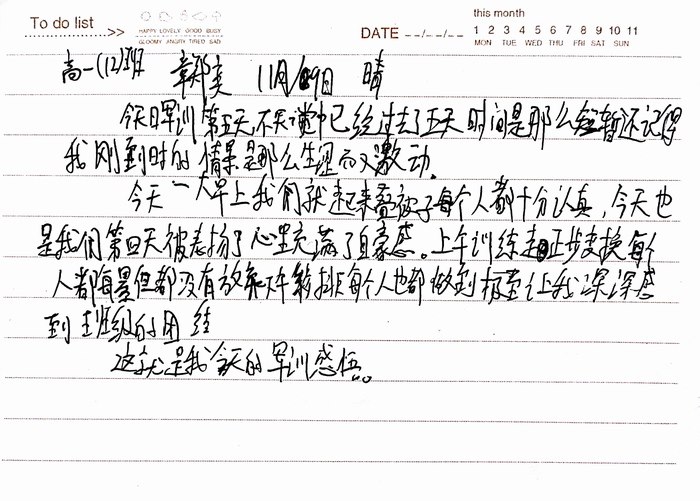 To do list >>
HAPPY LOVELY GOOD BUSY
GLOOMY ANGRY TIRED SAD
DATE --/--/--
this month
1 2 3 4 5 6 7 8 9 10 11
MON TUE WED THU FRI SAT SUN
高一(12)班 11月 9日 晴
今天军训第五天,不知不觉中已经过去了五天时间是那么短暂还记得
我刚到时的情景是那么生涩而又激动.
今天一大早上我们就起来叠被子每个人都十分认真,今天也
是我们第四天被表扬了心里充满了自豪感。上午训练走正步变换每个
人都每累但都没有放弃下午彩排每个人也都做到极至让我深深感
到班级的团结
这就是我今天的军训感悟。